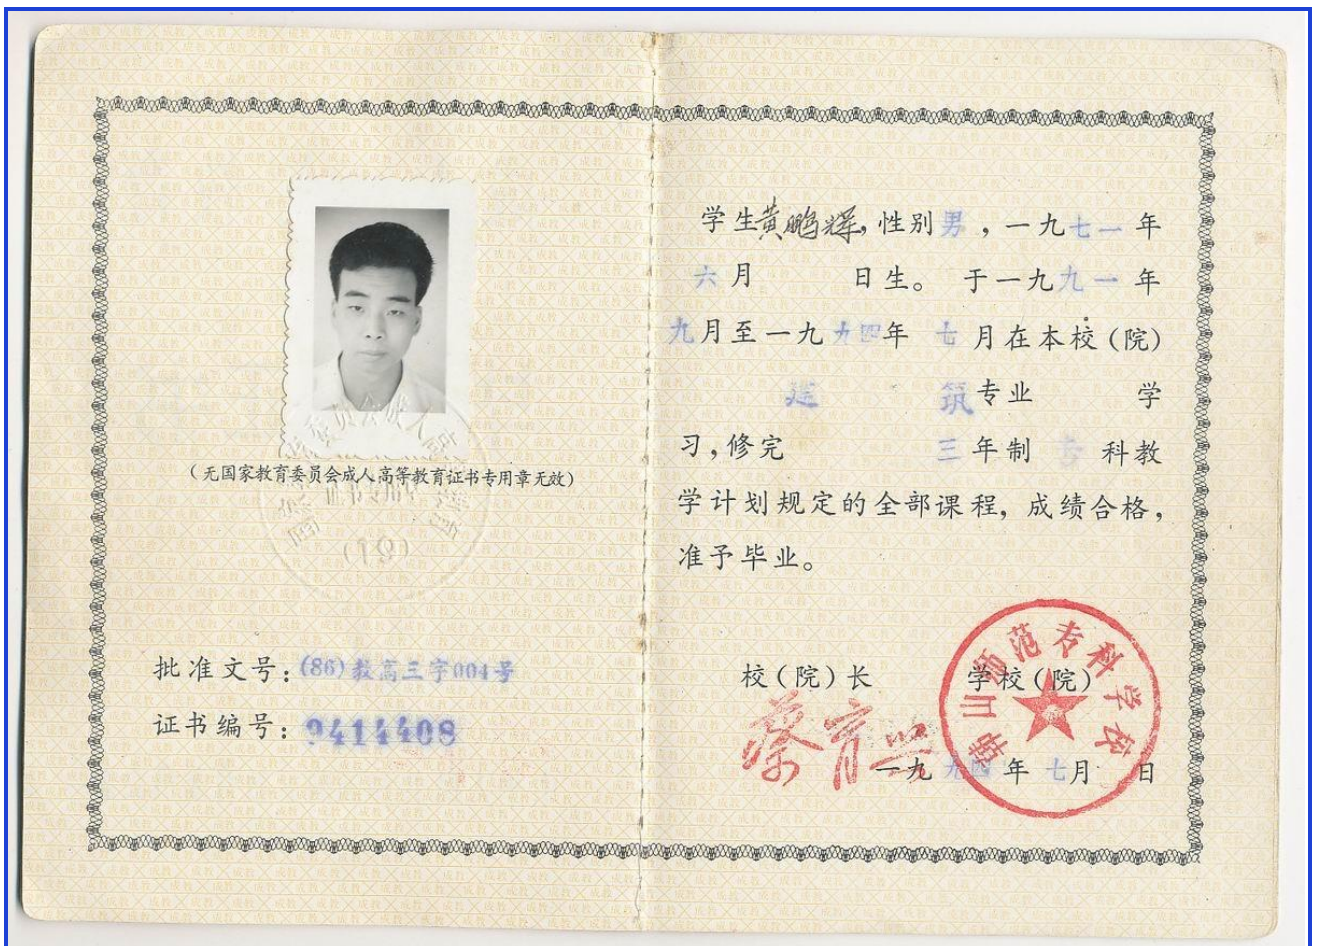 (无国家教育委员会成人高等教育证书专用章无效)
(19)
批准文号：(86)教高三字004号
证书编号：9414408
学生黄鹏辉，性别男，一九七一年
六月 日生。于一九九一年
九月至一九九四年七月在本校(院)
建筑专业 学
习，修完 三年制专科教
学计划规定的全部课程，成绩合格，
准予毕业。
校(院)长 学校(院)
蔡育兴
韩山师范专科学校
一九九四年七月 日